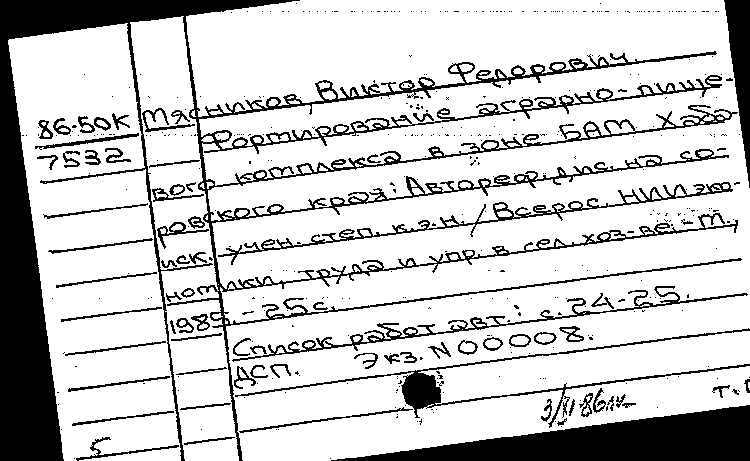 Мясников, Виктор Федорович.
86-50К
7532
Формирование аграрно-пище-
вого комплекса в зоне БАМ Хаба-
ровского края: Автореф. дис. на со-
иск. учен. степ. к.э.н. / Всерос. НИИ эко-
номики, труда и упр. в сел. хоз-ве. - М.,
1985. - 25 с.
Список работ авт.: с. 24-25.
ДСП. Экз. N 00008.
5